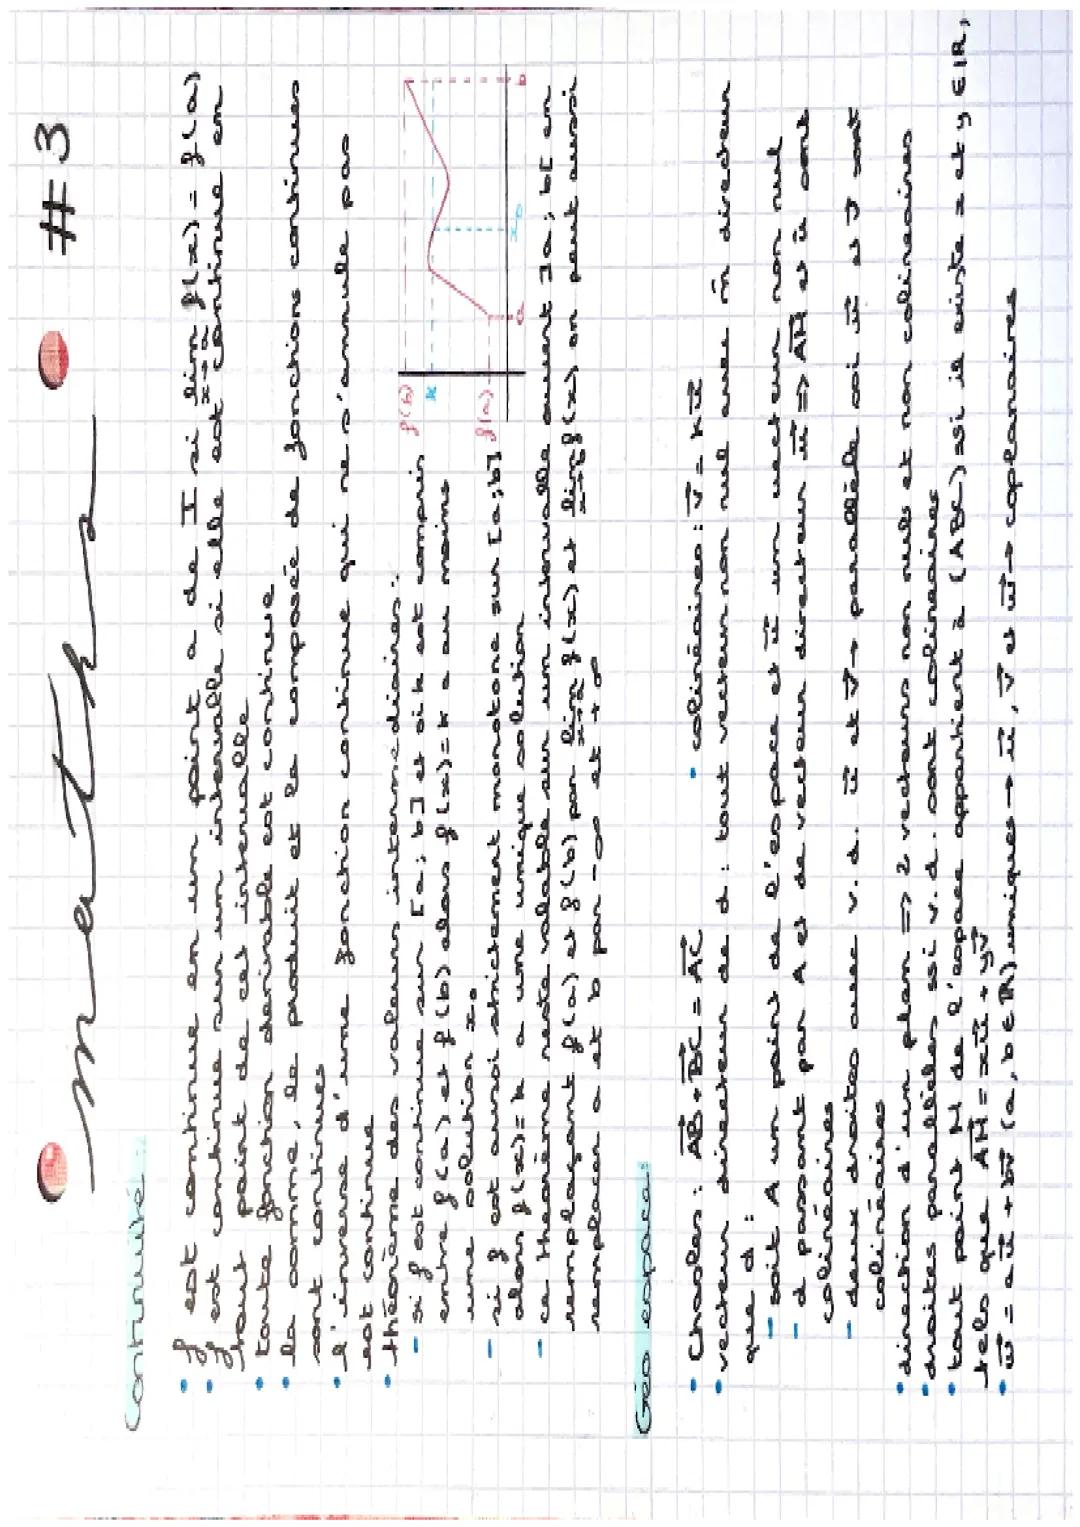 maths #3
Continuité :
• f est continue en un point a de I si lim x→a f(x) = f(a)
• f est continue sur un intervalle si elle est continue en
tout point de cet intervalle
• toute fonction dérivable est continue
• la somme, le produit et la composée de fonctions continues
sont continues
• l'inverse d'une fonction continue qui ne s'annule pas
est continue
• théorème des valeurs intermédiaires :
- si f est continue sur [a ; b] et si k est compris
entre f(a) et f(b) alors f(x) = k a au moins
une solution x₀
- si f est aussi strictement monotone sur [a ; b]
alors f(x) = k a une unique solution
- ce théorème reste valable sur un intervalle ouvert ]a ; b[ en
remplaçant f(a) et f(b) par lim x→a f(x) et lim x→b f(x) on peut aussi
remplacer a et b par -∞ et +∞
f(b)
k
f(a)
a
x₀
b
Géo espace :
• Chasles : AB⃗ + BC⃗ = AC⃗
• colinéaires : v⃗ = k u⃗
• vecteur directeur de d : tout vecteur non nul avec m̂ direction
que d :
- soit A un point de l'espace et u⃗ un vecteur non nul
- d passant par A et de vecteur directeur u⃗ => AM⃗ et u⃗ sont
colinéaires
- deux droites avec v.d. u⃗ et v⃗ → parallèle ssi u⃗ et v⃗ sont
colinéaires
• direction d'un plan => 2 vecteurs non nuls et non colinéaires
• droites parallèles ssi v.d. sont colinéaires
• tout point M de l'espace appartient à (ABC) ssi il existe x et y ∈ ℝ,
tels que AM⃗ = xu⃗ + yv⃗
• w⃗ = au⃗ + bv⃗ (a, b ∈ ℝ) uniques → u⃗, v⃗ et w⃗ → coplanaires